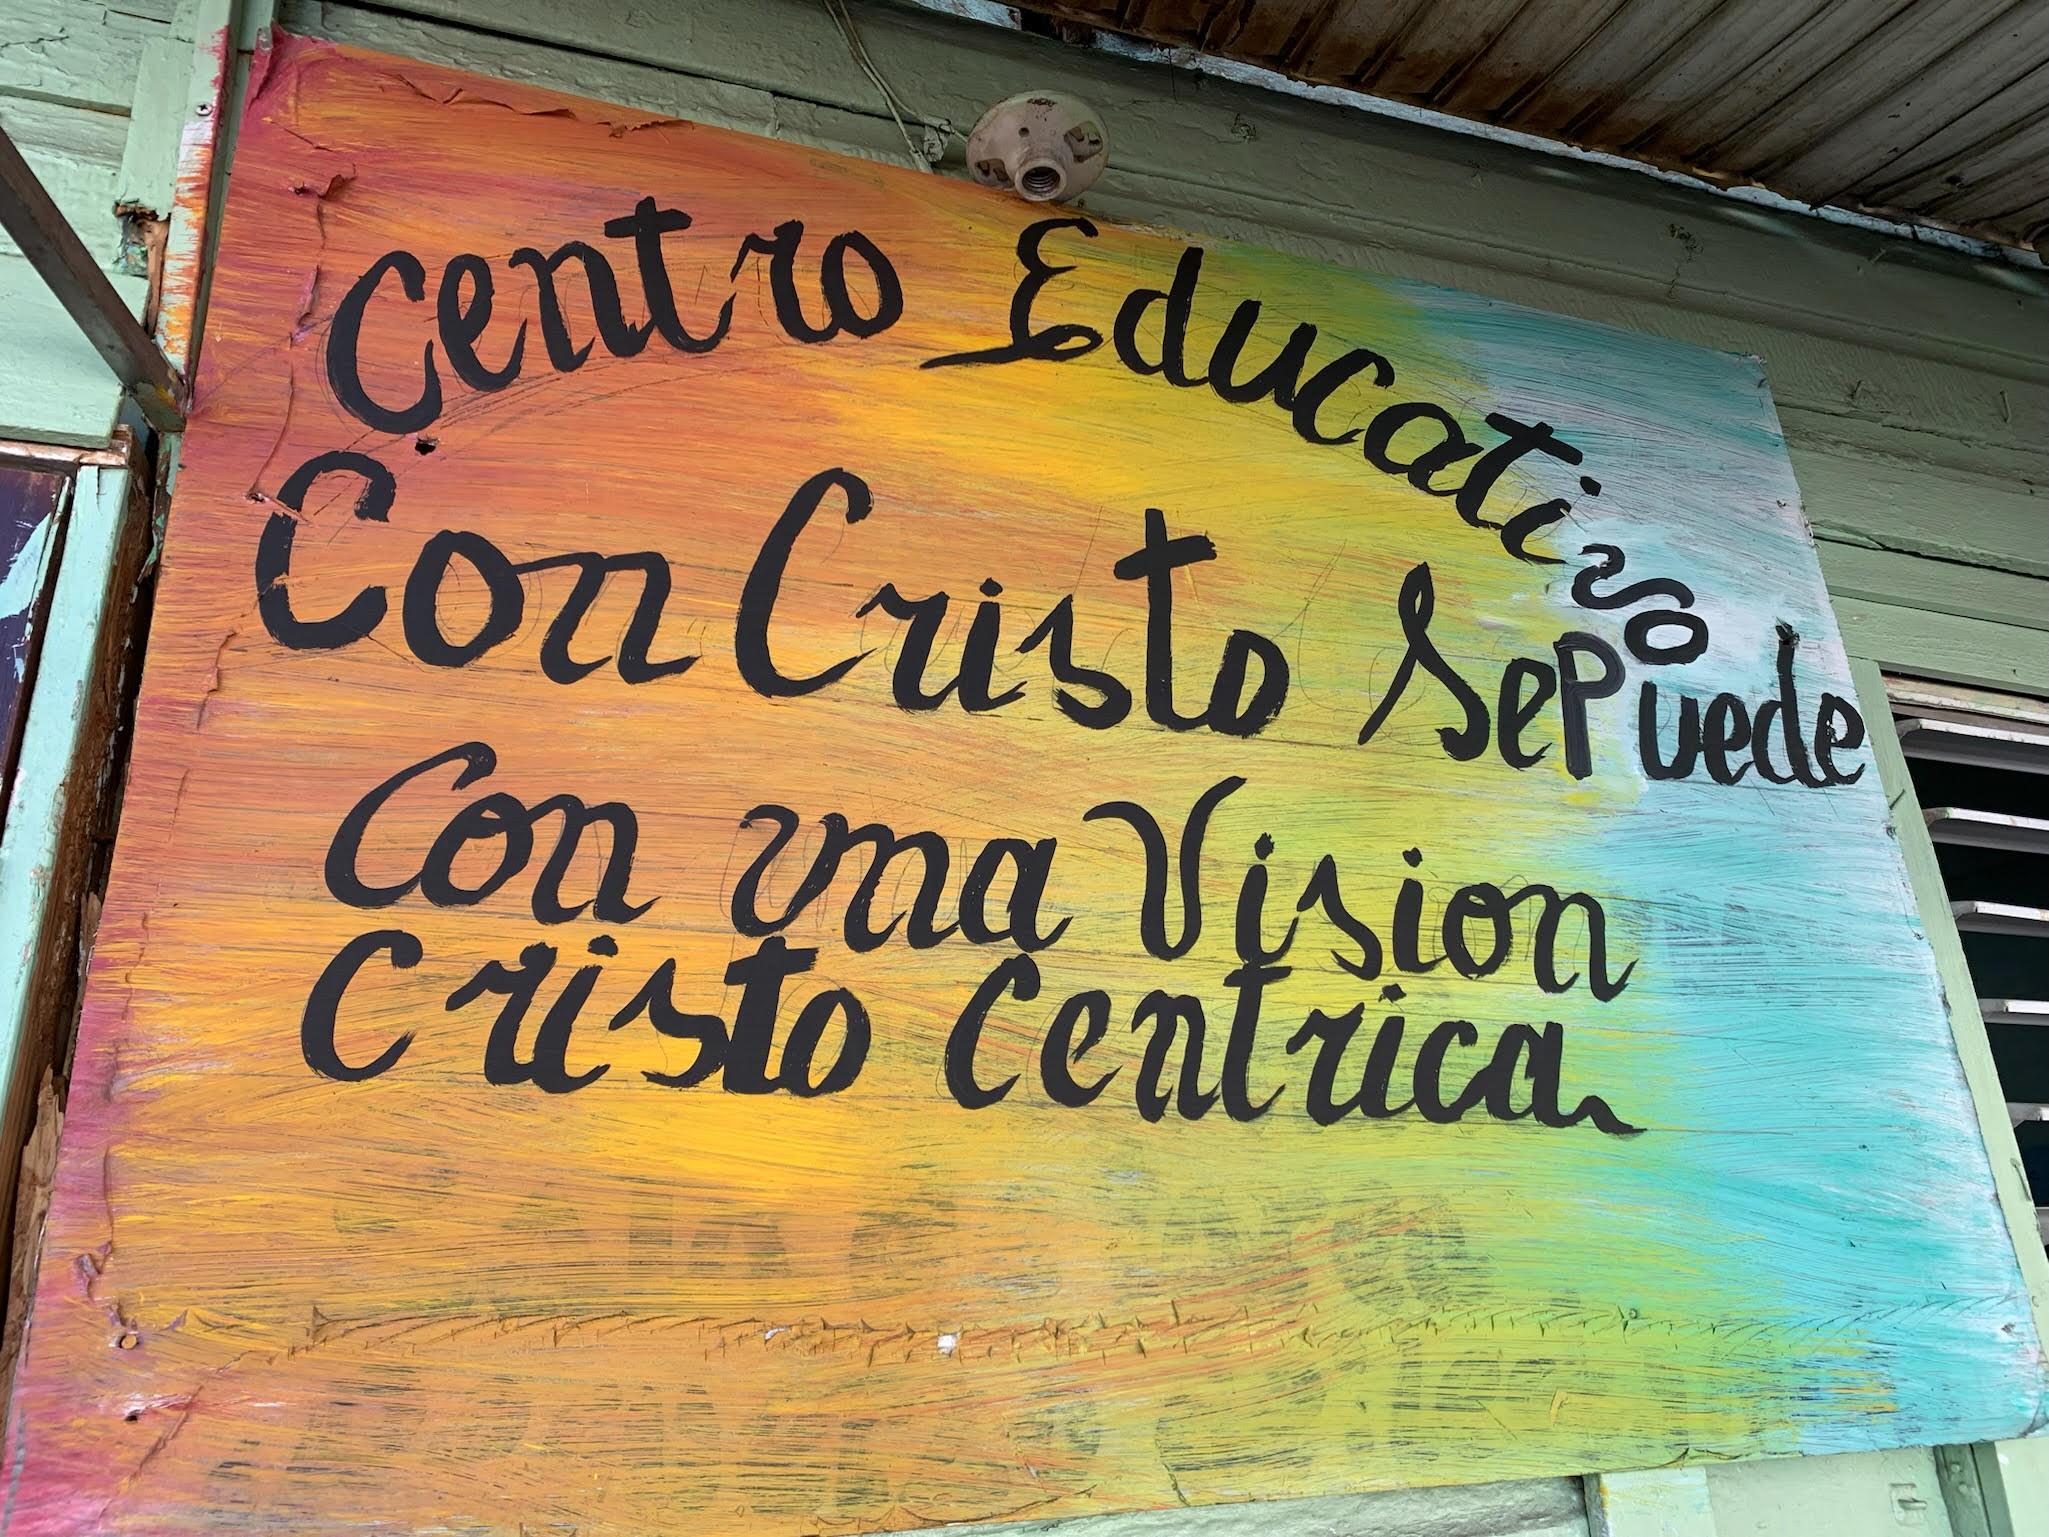 Centro Educativo
Con Cristo Se Puede
Con una Vision
Cristo Centrica